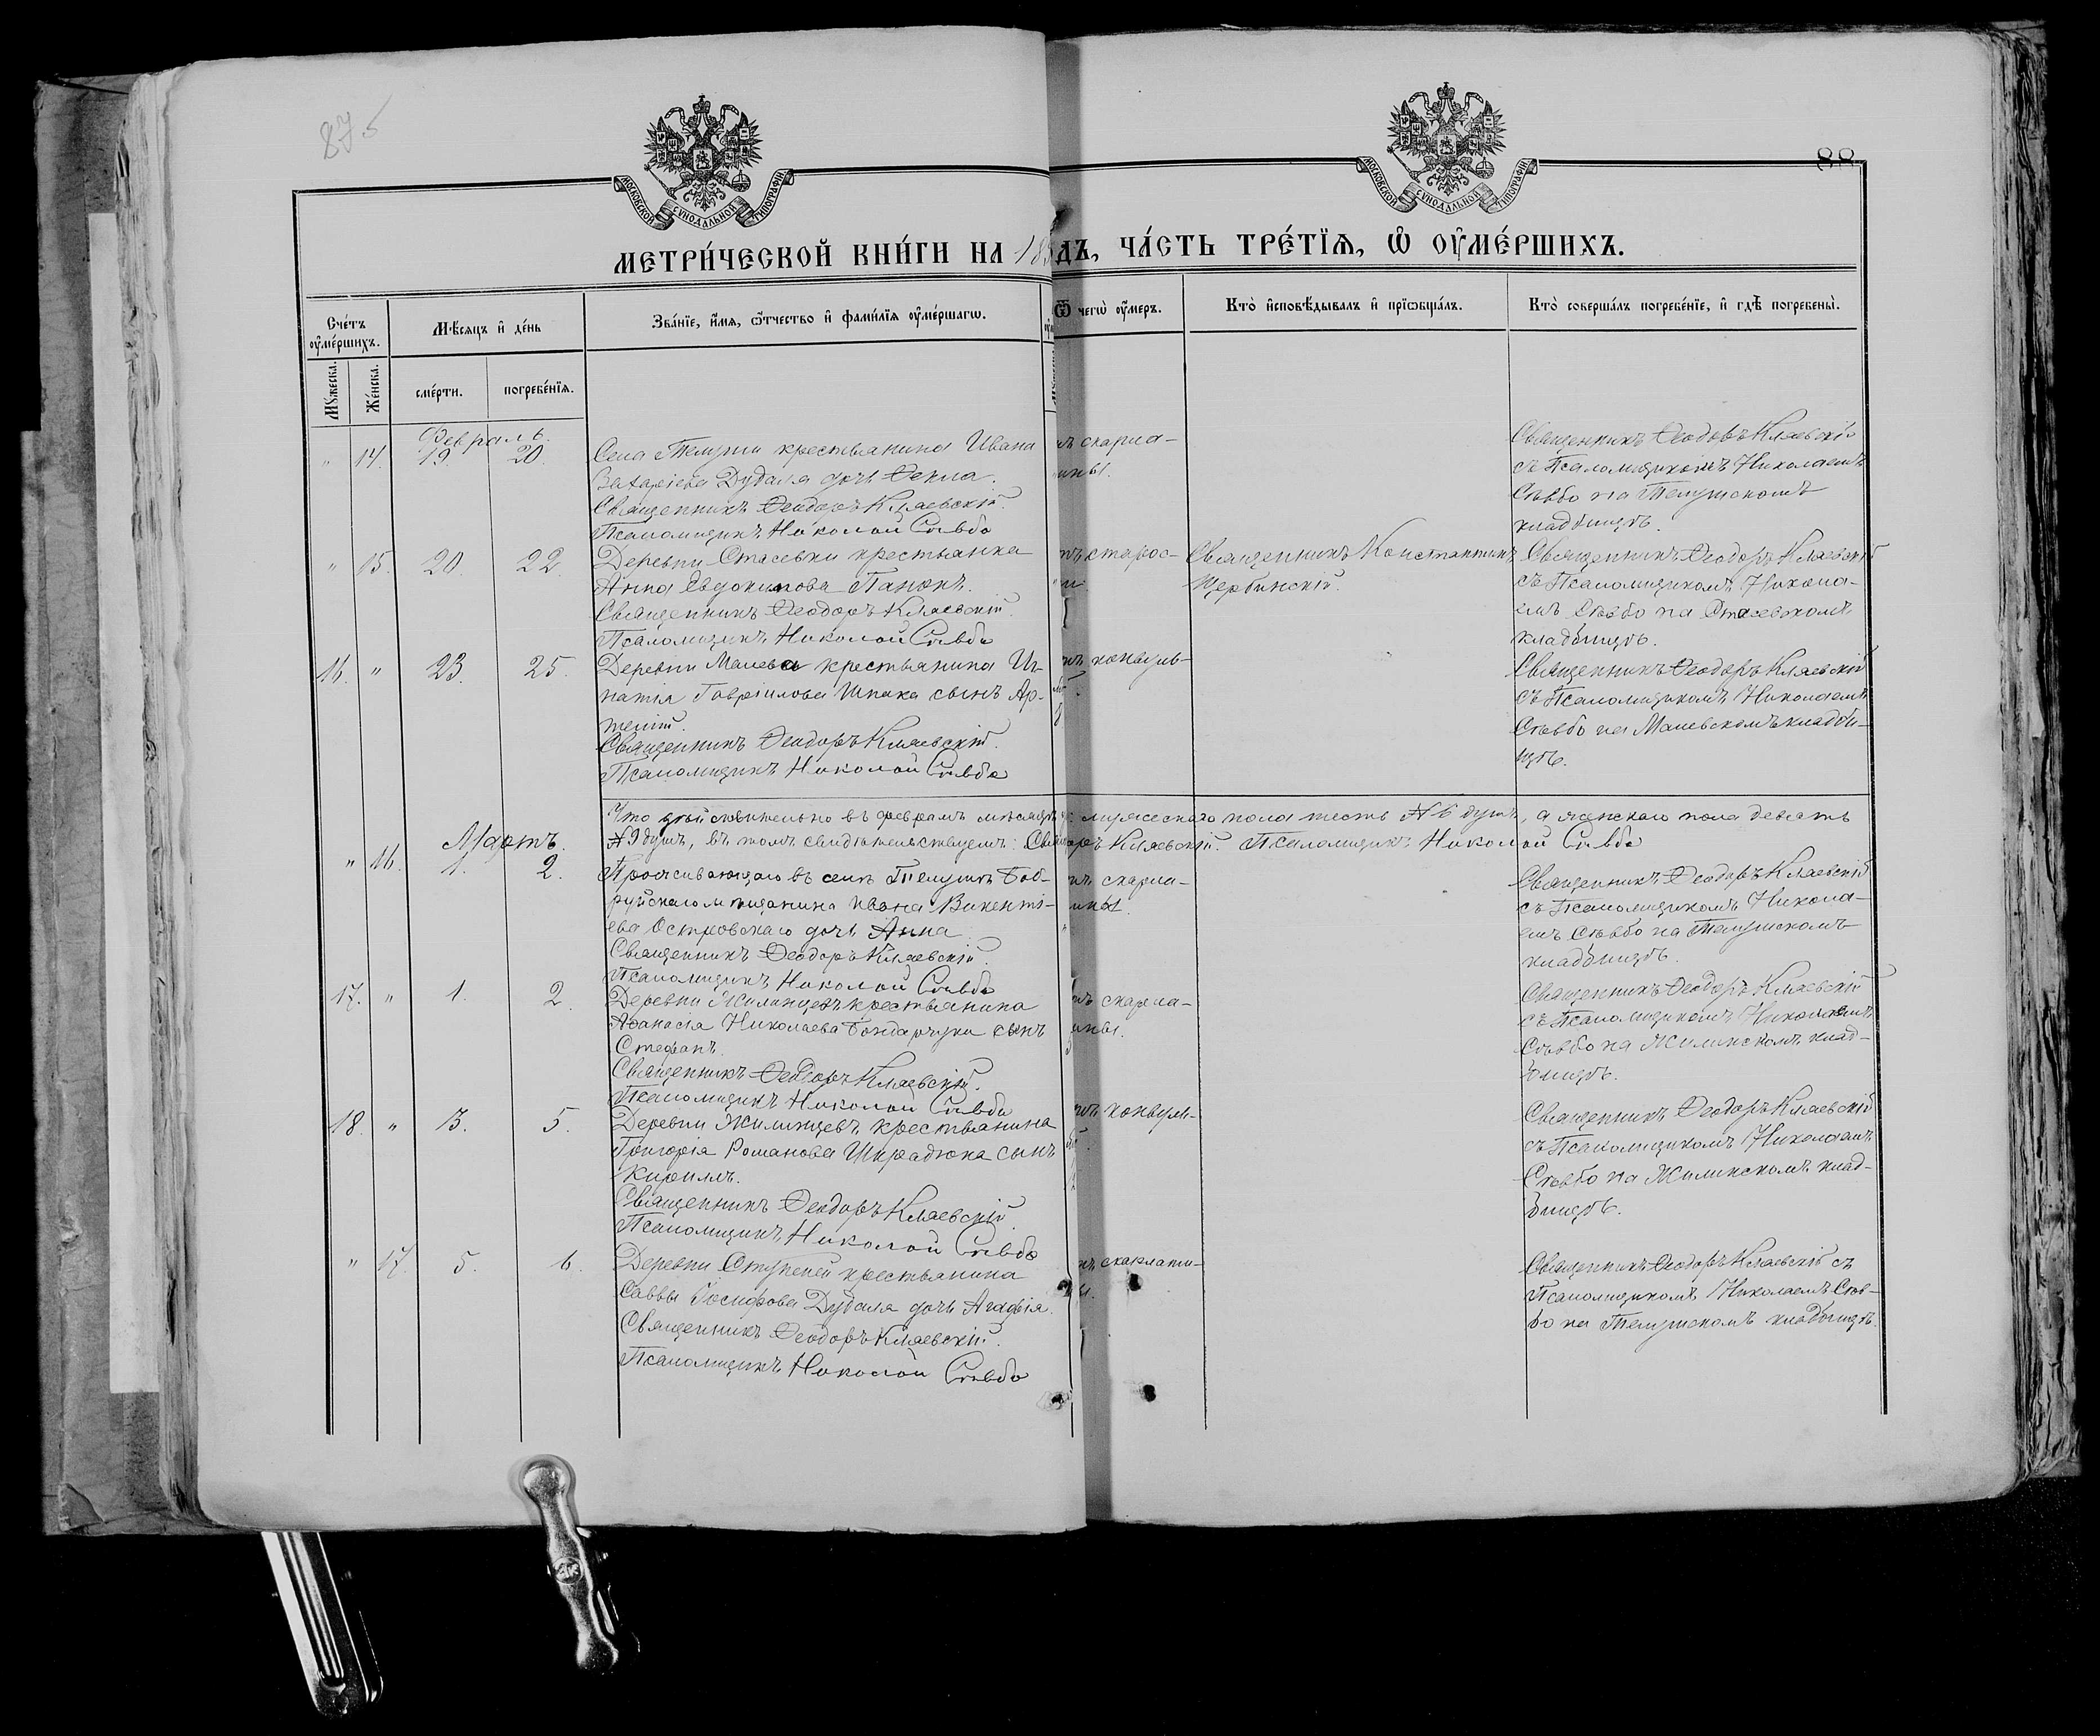 875
88
МОСКОВСКОЙ СѴНОДАЛЬНОЙ ТИПОГРАФІИ
МОСКОВСКОЙ СѴНОДАЛЬНОЙ ТИПОГРАФІИ
МЕТРИ́ЧЕСКОЙ КНИ́ГИ НА 18
ДЪ, ЧА́СТЬ ТРЕ́ТЇѦ, Ѽ ОУМЕ́РШИХЪ.
Сче́тъ оуме́ршихъ.
Мѣ́сяцъ и де́нь
Зва́нїе, и́мѧ, ѻ҆́тчество и фами́лїѧ оуме́ршагѡ.
Ѿ чегѡ̀ оу́меръ.
Кто̀ и҆сповѣ́дывалъ и прїѡбща́лъ.
Кто̀ соверша́лъ погребе́нїе, и гдѣ̀ погребены̀.
Мꙋ́жеска.
Же́нска.
сме́рти.
погребе́нїѧ.
Февраль.
" 14. 19. 20.
Села Телуши крестьянина Ивана
Захаріева Дудаля дочь Ѳекла.
Священникъ Ѳеодоръ Кляевскій.
Псаломщикъ Николай Сльвбо
ъ скарла-
ины.
Священникъ Ѳеодоръ Кляевскій
съ Псаломщикомъ Николаемъ
на Телушскомъ
кладбищѣ.
" 15. 20. 22
Деревни Стасевки крестьянка
Анна Евдокимова Панюкъ.
Священникъ Ѳеодоръ Кляевскій.
Псаломщикъ Николай
ъ старос-
и.
Священникъ Константинъ
Щербинскій.
Священникъ Ѳеодоръ Кляевскій
съ Псаломщикомъ Никола-
емъ на Стасевскомъ
кладбищѣ.
16. " 23. 25.
Деревни Малева крестьянина Иг-
натія Гавріилова Шпака сынъ Ар-
темій.
Священникъ Ѳеодоръ Кляевскій.
Псаломщикъ Николай
ъ конвуль-
Священникъ Ѳеодоръ Кляевскій
съ Псаломщикомъ Николаемъ
на Малевскомъ кладби-
щѣ.
Что дѣйствительно въ февралѣ мѣсяцѣ мужескаго пола шесть № 6 душъ, а женскаго пола девять
№ 9 душъ, въ томъ свидѣтельствуемъ: Свящ оръ Кляевскій. Псаломщикъ Николай
Мартъ.
" 16. 1. 2.
Проживающаго въ селѣ Телушѣ Боб-
руйскаго мѣщанина Ивана Викенті-
ева Островскаго дочь Анна
Священникъ Ѳеодоръ Кляевскій.
Псаломщикъ Николай
ъ скарла-
ины.
Священникъ Ѳеодоръ Кляевскій
съ Псаломщикомъ Никола-
емъ на Телушскомъ
кладбищѣ.
17. " 1. 2.
Деревни Жилинцевъ крестьянина
Аѳанасія Николаева Бондарчука сынъ
Стефанъ.
Священникъ Ѳеодоръ Кляевскій.
Псаломщикъ Николай
ъ скарла-
ины.
Священникъ Ѳеодоръ Кляевскій
съ Псаломщикомъ Николаемъ
на Жилинскомъ клад-
бищѣ.
18. " 3. 5.
Деревни Жилинцевъ крестьянина
Григорія Романова Шкрадюка сынъ
Кириллъ.
Священникъ Ѳеодоръ Кляевскій.
Псаломщикъ Николай
ъ конвуль-
Священникъ Ѳеодоръ Кляевскій
съ Псаломщикомъ Николаемъ
на Жилинскомъ клад-
бищѣ.
" 17. 5. 6.
Деревни Ступеней крестьянина
Саввы Іосифова Дудаля дочь Агафія.
Священникъ Ѳеодоръ Кляевскій.
Псаломщикъ Николай
ъ скарлати-
ы.
Священникъ Ѳеодоръ Кляевскій съ
Псаломщикомъ Николаемъ
на Телушскомъ кладбищѣ.